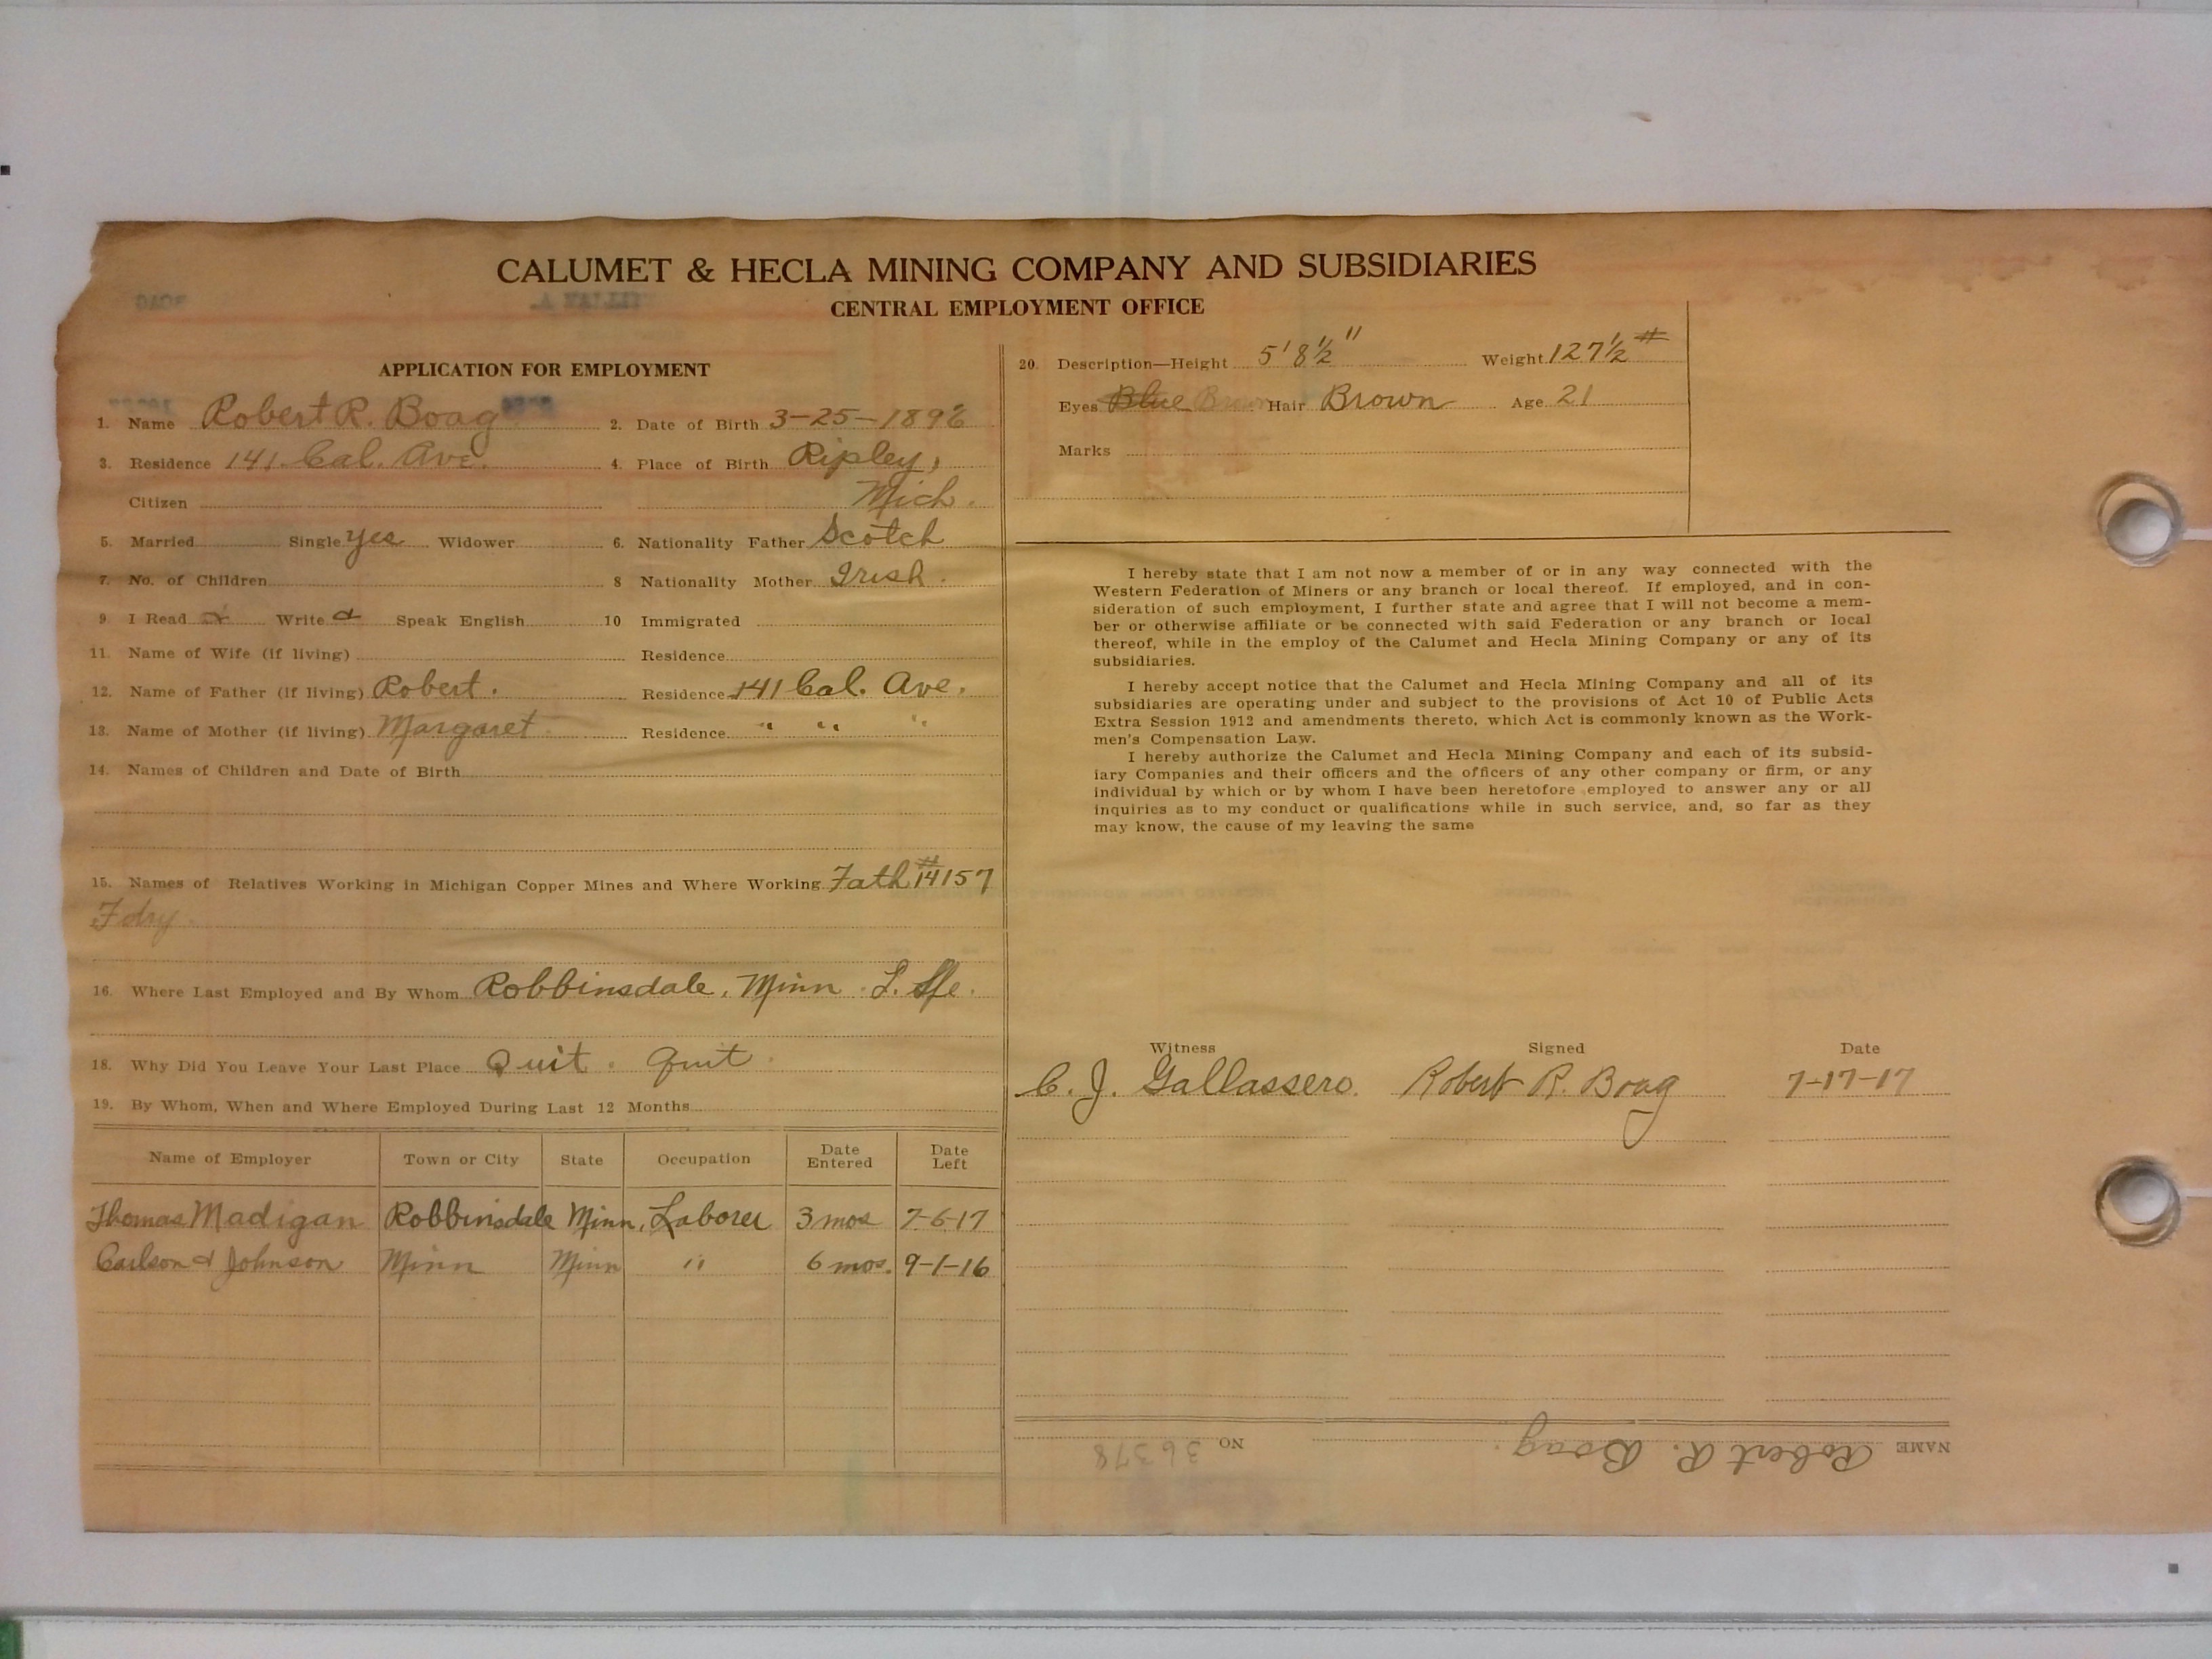 CALUMET & HECLA MINING COMPANY AND SUBSIDIARIES
CENTRAL EMPLOYMENT OFFICE
APPLICATION FOR EMPLOYMENT
1. Name Robert R. Boag 2. Date of Birth 3-25-1896
3. Residence 141 Cal. Ave. 4. Place of Birth Ripley,
Citizen Mich.
5. Married Single yes Widower 6. Nationality Father Scotch
7. No. of Children 8 Nationality Mother Irish.
9. I Read Write Speak English 10 Immigrated
11. Name of Wife (if living) Residence
12. Name of Father (if living) Robert. Residence 141 Cal. Ave.
13. Name of Mother (if living) Margaret Residence " " "
14. Names of Children and Date of Birth
15. Names of Relatives Working in Michigan Copper Mines and Where Working Fath #14157
Fdry.
16. Where Last Employed and By Whom Robbinsdale, Minn.
18. Why Did You Leave Your Last Place Quit. Quit.
19. By Whom, When and Where Employed During Last 12 Months
Name of Employer Town or City State Occupation Date Entered Date Left
Thomas Madigan Robbinsdale Minn, Laborer 3 mos 7-6-17
Carlson & Johnson Minn Minn " 6 mos. 9-1-16
20. Description—Height 5' 8½" Weight 127½ #
Eyes Blue Brown Hair Brown Age 21
Marks
I hereby state that I am not now a member of or in any way connected with the
Western Federation of Miners or any branch or local thereof. If employed, and in con-
sideration of such employment, I further state and agree that I will not become a mem-
ber or otherwise affiliate or be connected with said Federation or any branch or local
thereof, while in the employ of the Calumet and Hecla Mining Company or any of its
subsidiaries.
I hereby accept notice that the Calumet and Hecla Mining Company and all of its
subsidiaries are operating under and subject to the provisions of Act 10 of Public Acts
Extra Session 1912 and amendments thereto, which Act is commonly known as the Work-
men's Compensation Law.
I hereby authorize the Calumet and Hecla Mining Company and each of its subsid-
iary Companies and their officers and the officers of any other company or firm, or any
individual by which or by whom I have been heretofore employed to answer any or all
inquiries as to my conduct or qualifications while in such service, and, so far as they
may know, the cause of my leaving the same
Witness Signed Date
C. J. Gallassero. Robert R. Boag 7-17-17
NAME Robert R. Boag. NO 36378